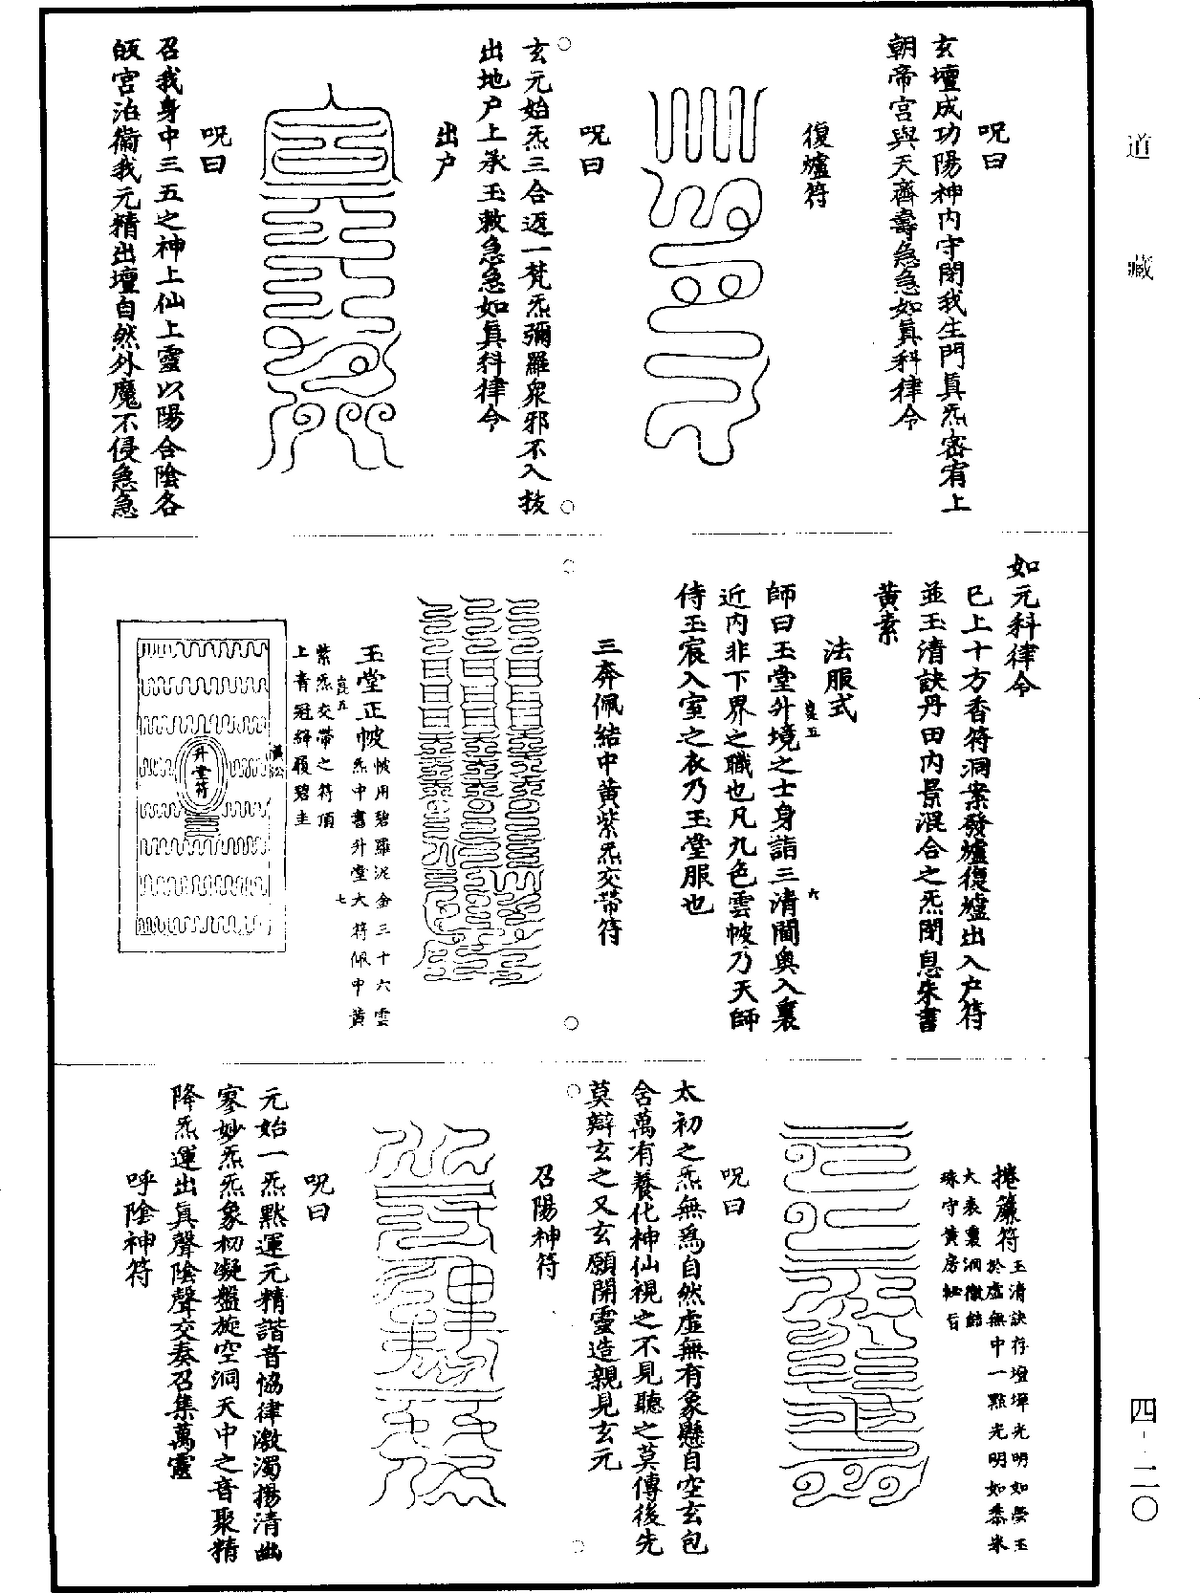 道藏
呪曰
玄壇成功陽神內守閉我生門真炁密宥上
朝帝宮與天齊壽急急如真科律令
復爐符
呪曰
玄元始炁三合返一梵炁彌羅衆邪不入拔
出地户上承玉敕急急如真科律令
出户
呪曰
召我身中三五之神上仙上靈以陽合陰各
皈宮治衞我元精出壇自然外魔不侵急急
如元科律令
已上十方香符洞案發爐復爐出入户符
並玉清訣丹田內景混合之炁閉息朱書
黃素
法服式
師曰玉堂升境之士身詣三清閫奥入裏
近內非下界之職也凡九色雲帔乃天師
侍玉宸入室之衣乃玉堂服也
三奔佩結中黃紫炁交帶符
玉堂正帔
帔用碧羅泥金三十六雲
炁中書升堂大符佩中黃
紫炁交帶之符頂
上青冠絳履碧圭
升堂符
捲簾符
玉清訣存壇墠光明如瑩玉
於虛無中一點光明如黍米
大表裏洞徹飴
珠守黃房祕旨
呪曰
太初之炁無爲自然虛無有象懸自空玄包
含萬有養化神仙視之不見聽之莫傳後先
莫辯玄之又玄願開靈造親見玄元
召陽神符
呪曰
元始一炁點運元精諧音協律激濁揚清幽
寥妙炁炁象初凝盤旋空洞天中之音聚精
降炁運出真聲陰聲交奏召集萬靈
呼陰神符
四-二〇